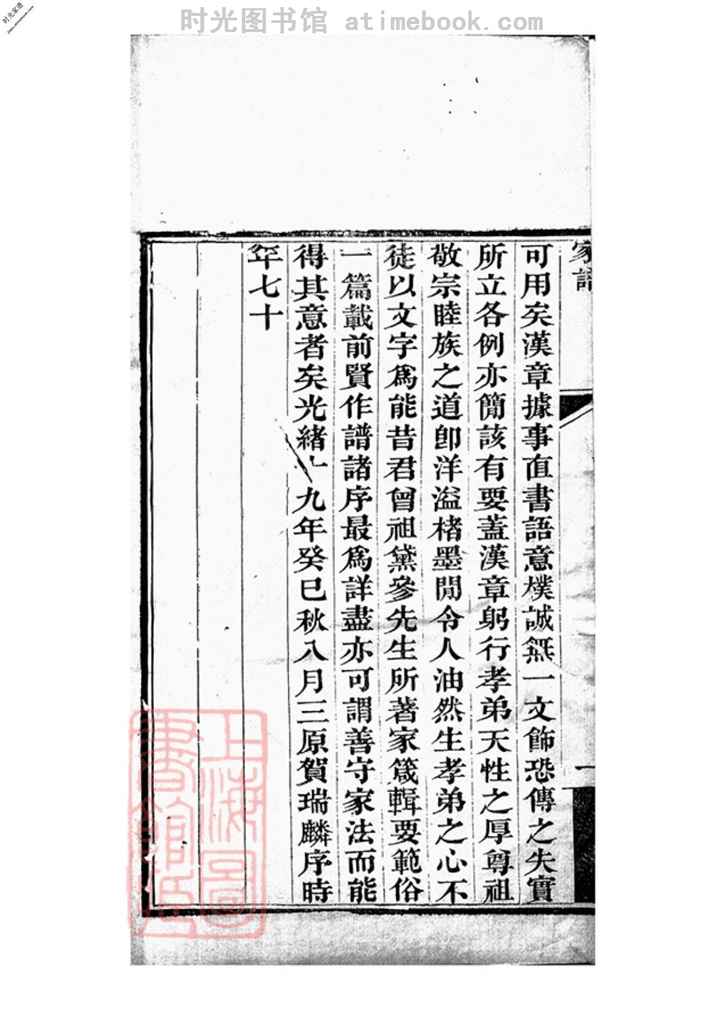 时光图书馆 atimebook.com
家譜
可用矣漢章據事直書語意樸誠無一文飾恐傳之失實
所立各例亦簡該有要蓋漢章躬行孝弟天性之厚尊祖
敬宗睦族之道卽洋溢楮墨閒令人油然生孝弟之心不
徒以文字爲能昔君曾祖黛參先生所著家箴輯要範俗
一篇載前賢作譜諸序最爲詳盡亦可謂善守家法而能
得其意者矣光緒十九年癸巳秋八月三原賀瑞麟序時
年七十
上海圖書館藏